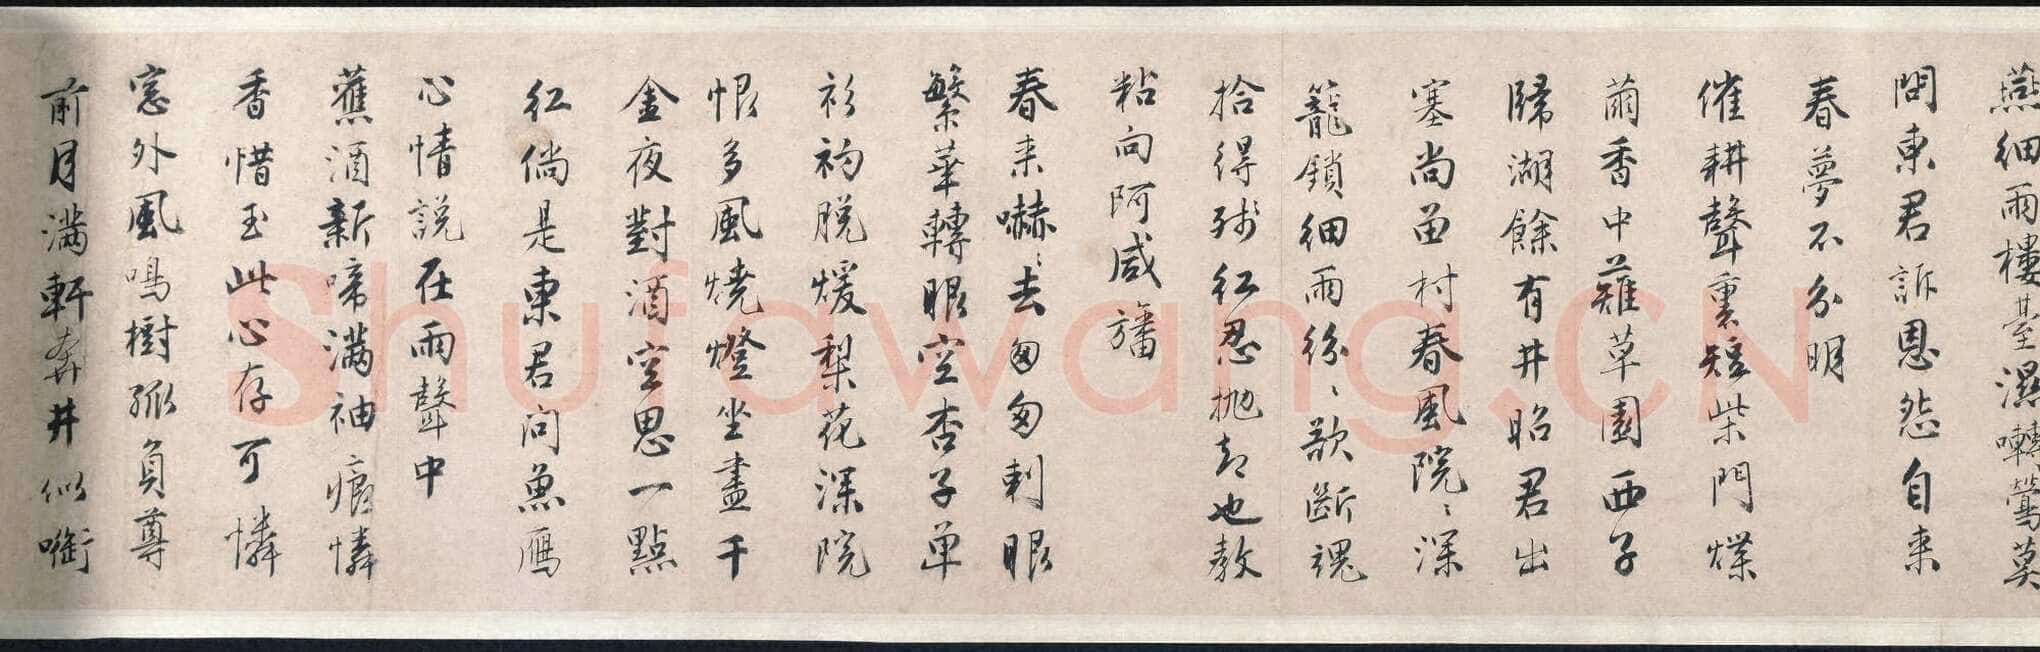 燕細雨樓臺濕囀鶯莫
問東君訴恩怨自来
春夢不分明
催耕聲裏短柴門煠
繭香中薙草園西子
歸湖餘有井昭君出
塞尚留村春風院〻深
籠鎖細雨紛〻欲斷魂
拾得殘紅忍抛却也教
粘向阿咸旛
春来嚇〻去匆匆刺眼
繁華轉眼空杏子單
衫初脱煖梨花深院
恨多風燒燈坐盡千
金夜對酒空思一點
紅倘是東君问魚雁
心情説在雨聲中
蕉酒新啼满袖痕憐
香惜玉此心存可憐
窓外風鳴樹孤負尊
前月满軒奔井似啣
Shufawang.CN